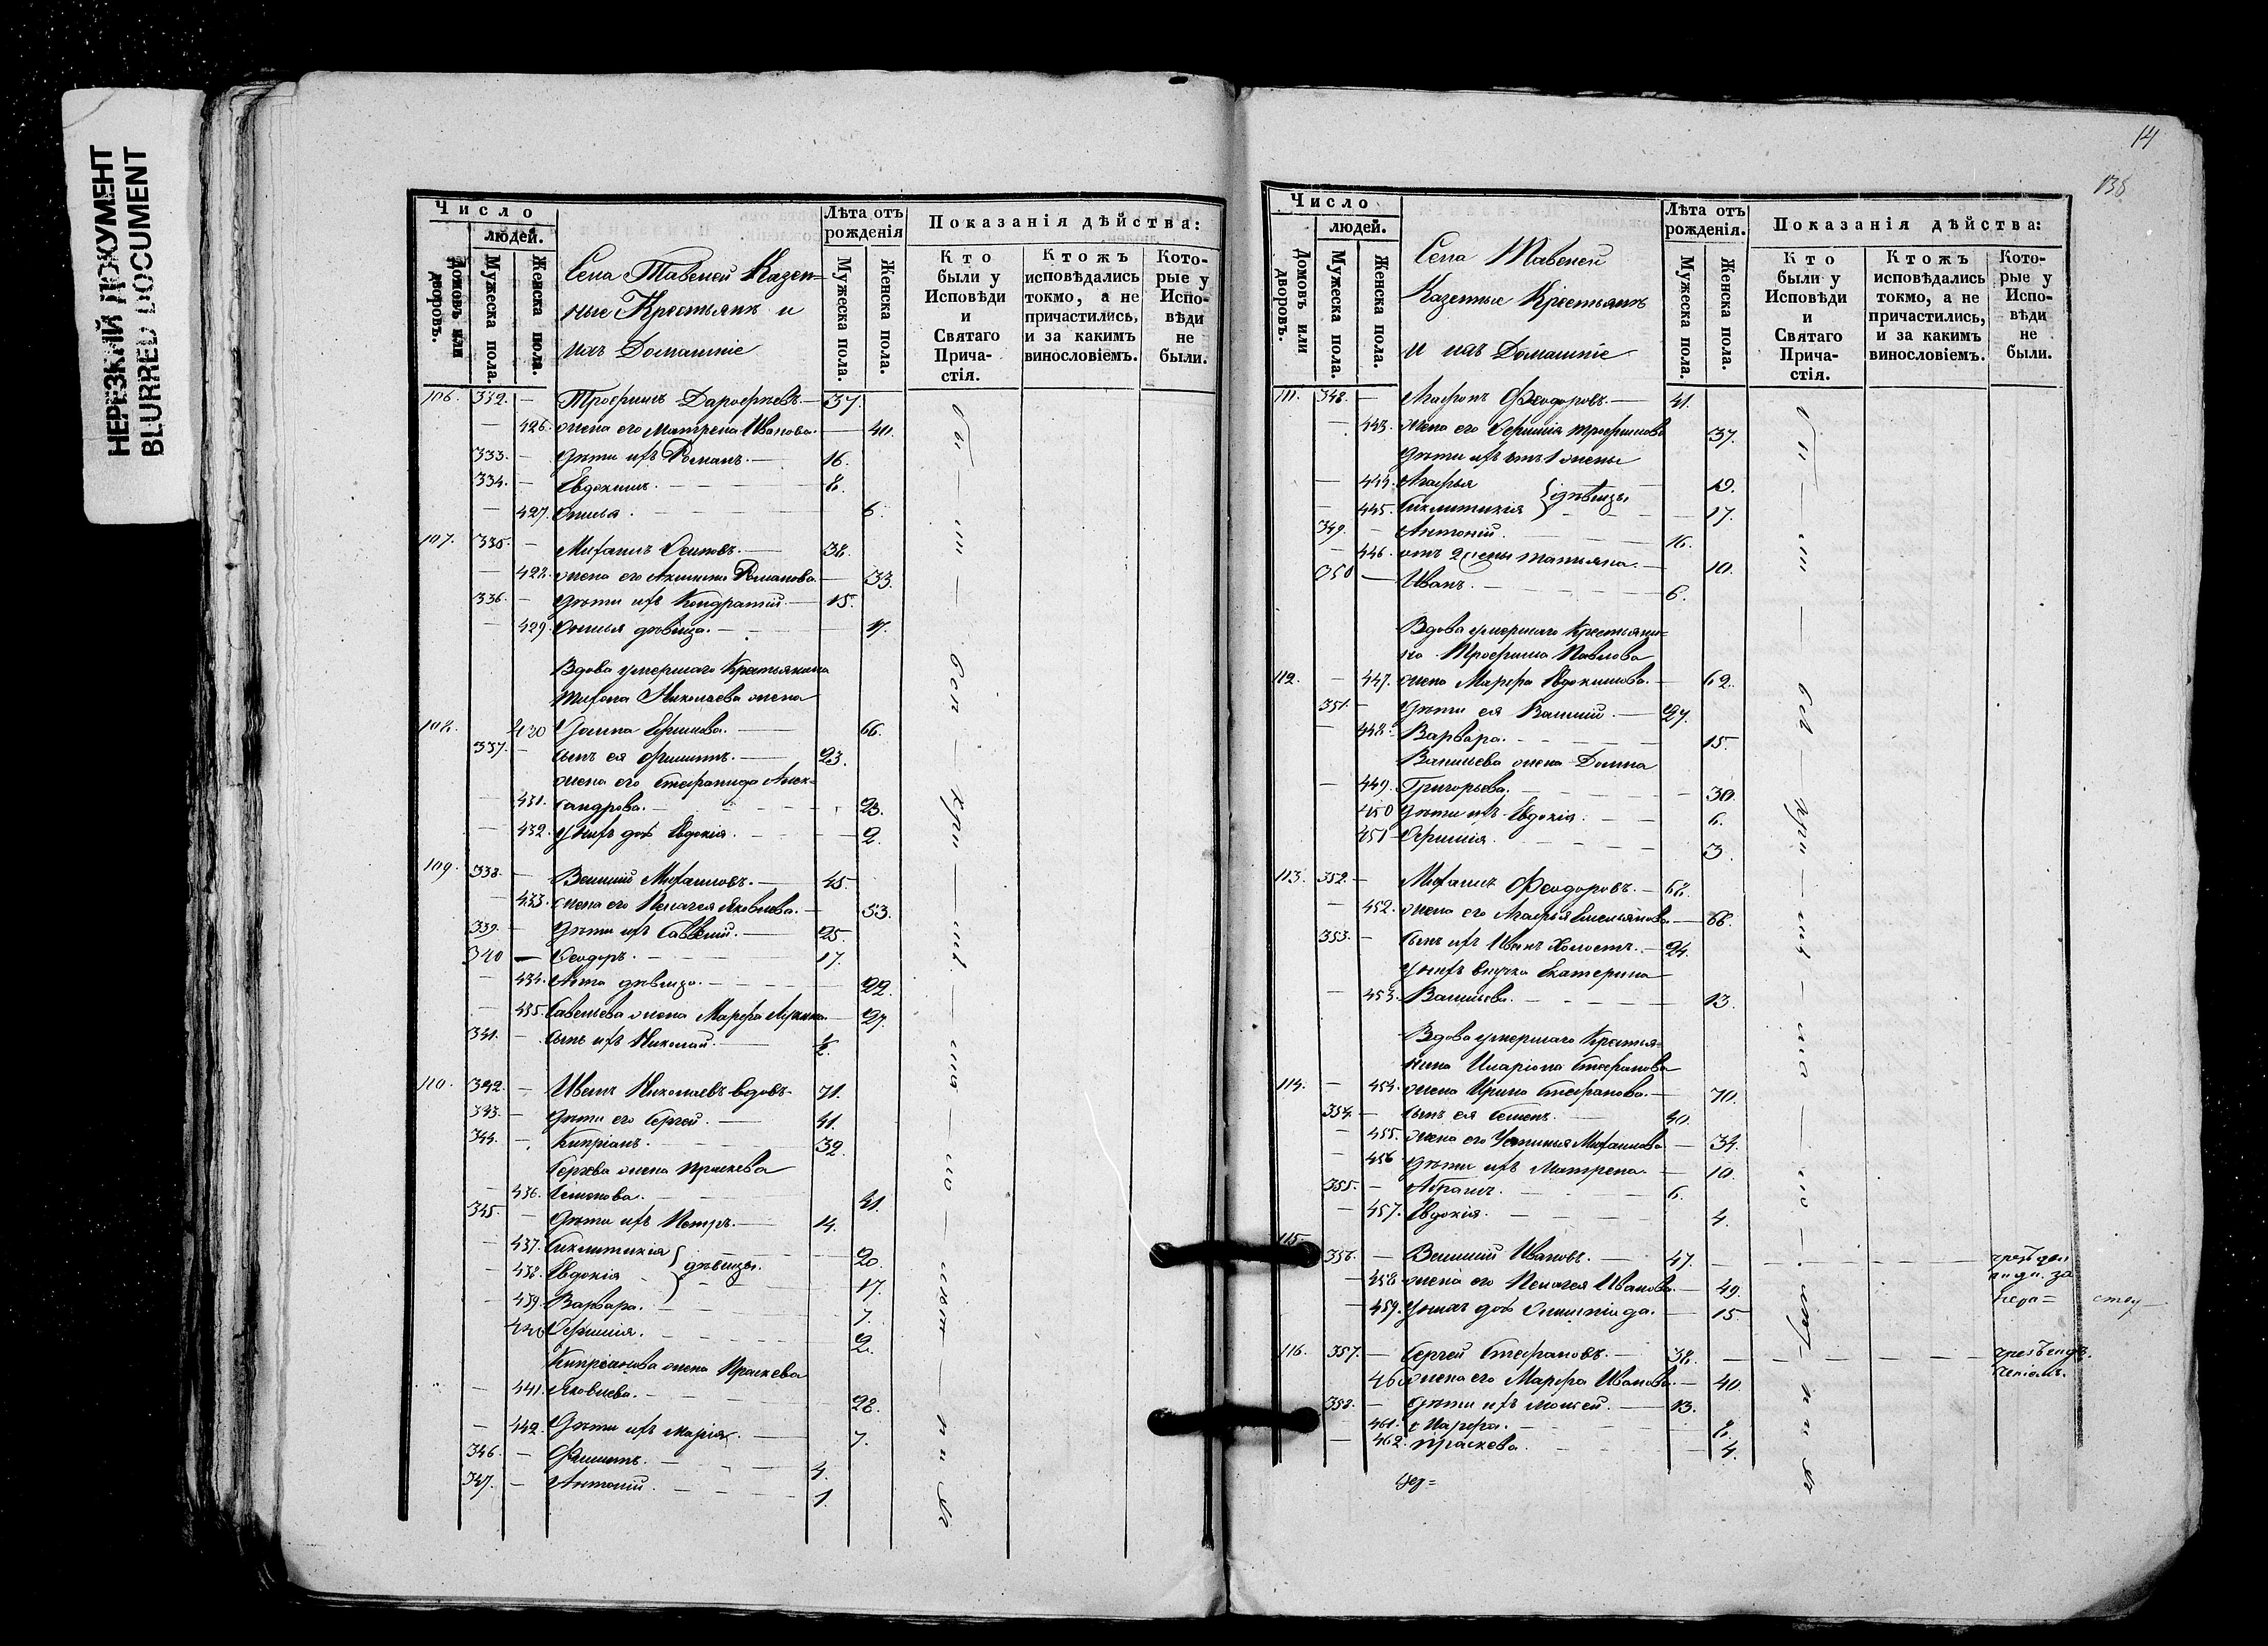 НЕРЕЗКИЙ ДОКУМЕНТ
BLURRED DOCUMENT
Число
людей.
Домовъ или дворовъ.
Мужеска пола.
Женска пола.
Села Тавеней Казен=
ные Крестьянъ и
ихъ Домашніе
Лѣта отъ рожденія
Мужеска пола.
Женска пола.
Показанія дѣйства:
Кто были у Исповѣди и Святаго Прича-стія.
Ктожъ исповѣдались токмо, а не причастились, и за какимъ винословіемъ.
Кото-рые у Испо-вѣди не были.
106. 332. — Трофимъ Дарофѣевъ. — 37.
— 426. жена его Матрена Иванова. — 40.
333. — дѣти ихъ Романъ. — 16.
334. — Евдокимъ. 8.
— 427. 6.
107. 335. — Михаилъ Осиповъ. — 38.
— 428. жена его Акилина Романова. — 33.
336. — дѣти ихъ Кондратій. — 15.
— 429. дѣвица. 17.
Вдова умершаго Крестьянина
Тихона Николаева жена
108. 430 Ефимова. 66.
337. — сынъ ея Филиппъ. 23.
жена его Стефанида Алек=
— 431. сандрова. 23.
— 432. у нихъ дочь Евдокія. 2.
109. 338. — Василій Михаиловъ. — 45.
— 433. жена его Пелагея Яковлева. — 53.
339. — дѣти ихъ Савелій. — 25.
340 — Ѳеодоръ. 17.
— 434. Анна дѣвица. 22.
— 435. Савельева жена Марфа 27.
341. — сынъ ихъ Николай. — 1/2.
110. 342. — Иванъ Николаевъ вдовъ. 71.
343. — дѣти его Сергей. — 41.
344. — Кипріанъ. 32.
жена Праскева
— 436. Семенова. 41.
345. — дѣти ихъ Петръ. — 14.
— 437. Сиклитикія } дѣвицы. 20.
— 438. Евдокія 17.
— 439. Варвара. 7.
440 Ѳефимія. 2.
Кипріанова жена Праскева
— 441. Яковлева. 28.
— 442. дѣти ихъ Марія. 7.
346. — Филиппъ. 4.
347. — Антоній. 1.
бы — ли — Исп — при — ща — лись
14
138
Число
людей.
Домовъ или дворовъ.
Мужеска пола.
Женска пола.
Села Тавеней
Казенные Крестьянъ
и ихъ Домашніе
Лѣта отъ рожденія.
Мужеска пола.
Женска пола.
Показанія дѣйства:
Кто были у Исповѣди и Святаго Прича-стія.
Ктожъ исповѣдались токмо, а не причастились, и за какимъ винословіемъ.
Кото-рые у Испо-вѣди не были.
111. 348. — Агафонъ Ѳеодоровъ. — 41.
— 443. жена его Ѳефимія Трофимова 37.
дѣти ихъ отъ 1 жены
— 444. Агафья } дѣвицы 19.
— 445. Сиклитикія 17.
349. — Антоній. 16.
— 446. отъ 2 жены Татьяна. — 10.
350 — Иванъ. 6.
Вдова умершаго Крестьяни=
на Трофима Павлова
112. — 447. жена Марфа Евдокимова. — 62.
351. — дѣти ея Василій. — 27.
— 448. Варвара. 15.
Васильева жена Домна
— 449. Григорьева. 30.
450 дѣти ихъ Евдокія. 6.
451 Ѳефимія. 3.
113. 352. — Михаилъ Ѳеодоровъ. — 68.
— 452. жена его Агафья Емельянова — 66.
353. — сынъ ихъ Иванъ Холостъ. — 24.
у нихъ внучка Екатерина
— 453. Васильева. 13.
Вдова умершаго Крестья=
нина Иларіона Стефанова
114. — 454. жена Ирина Стефанова. — 70.
354. — сынъ ея Семенъ. 40.
— 455. жена его Устинья Михаилова — 34.
— 456 дѣти ихъ Матрена. — 10.
355. — Абрамъ. 6.
— 457. Евдокія. 4.
115. 356. — Василій Ивановъ. — 47.
— 458 жена его Пелагея Иванова. — 49.
— 459. у нихъ дочь Олимпіада. — 15.
116. 357. — Сергей Стефановъ. — 38.
460 жена его Марфа Иванова. — 40.
358. — дѣти ихъ Моисей. — 13.
— 461. Марфа. 8.
— 462. Праскева. 4.
за
нера=